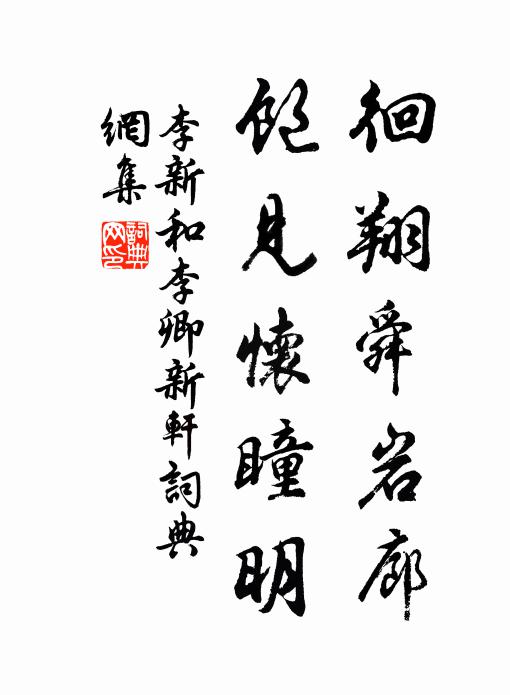 徊翔舜岩廊
飽見懷瞳明
李新和李卿新軒詞典
網集
詞典
网印